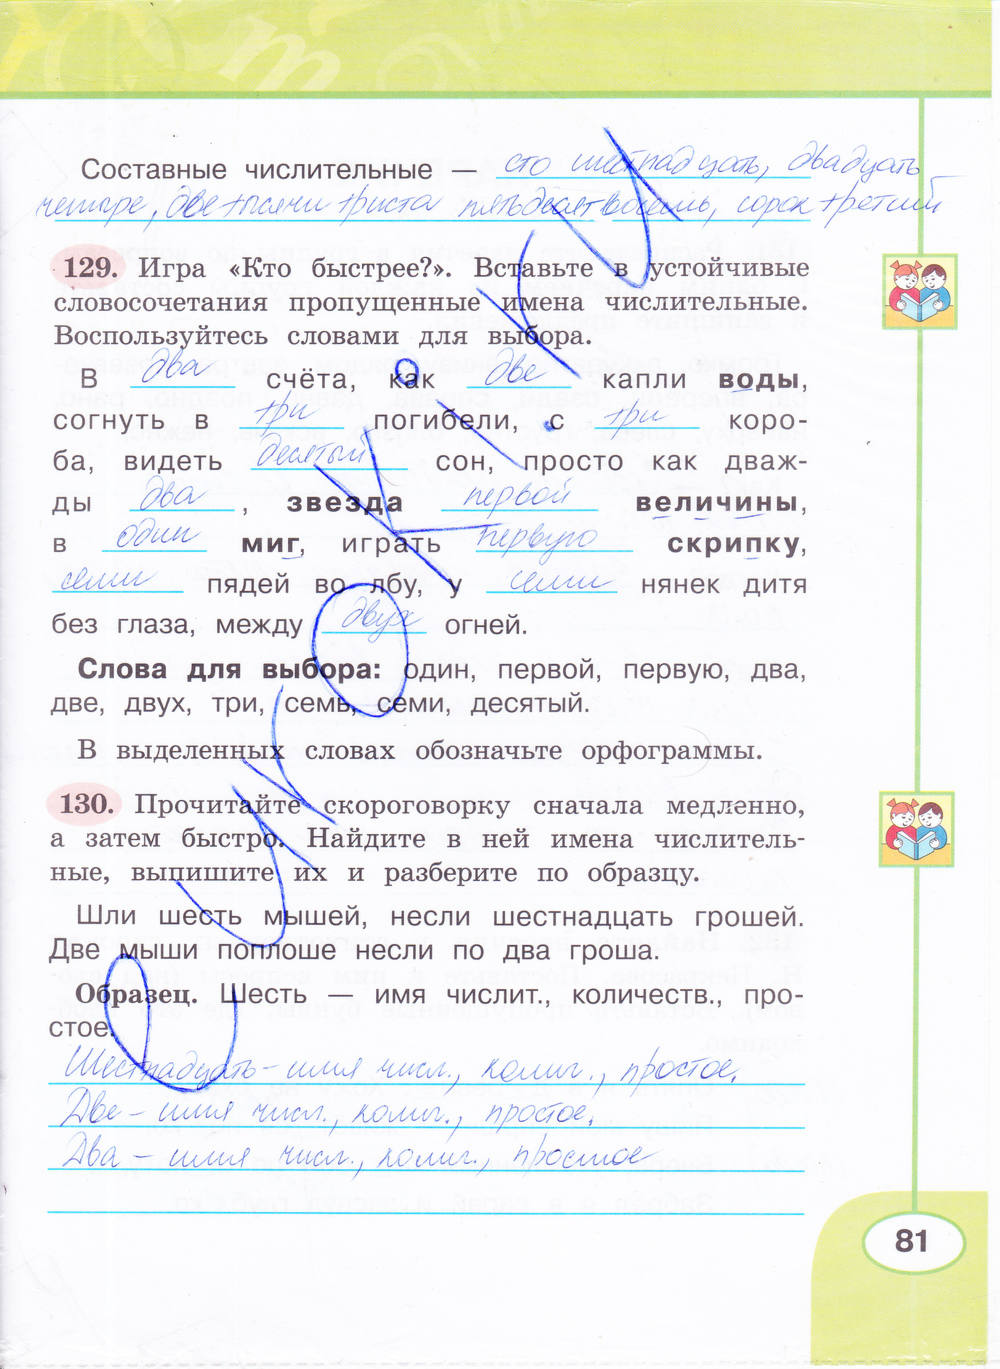 Составные числительные — сто шестнадцать, двадцать
четыре, две тысячи триста пятьдесят восемь, сорок третий
129. Игра «Кто быстрее?». Вставьте в устойчивые
словосочетания пропущенные имена числительные.
Воспользуйтесь словами для выбора.
В два счёта, как две капли воды,
согнуть в три погибели, с три коро-
ба, видеть десятый сон, просто как дваж-
ды два, звезда первой величины,
в один миг, играть первую скрипку,
семи пядей во лбу, у семи нянек дитя
без глаза, между двух огней.
Слова для выбора: один, первой, первую, два,
две, двух, три, семь, семи, десятый.
В выделенных словах обозначьте орфограммы.
130. Прочитайте скороговорку сначала медленно,
а затем быстро. Найдите в ней имена числитель-
ные, выпишите их и разберите по образцу.
Шли шесть мышей, несли шестнадцать грошей.
Две мыши поплоше несли по два гроша.
Образец. Шесть — имя числит., количеств., про-
стое.
Шестнадцать – имя числ., колич., простое.
Две – имя числ., колич., простое.
Два – имя числ., колич., простое
81
e-uroki.ru